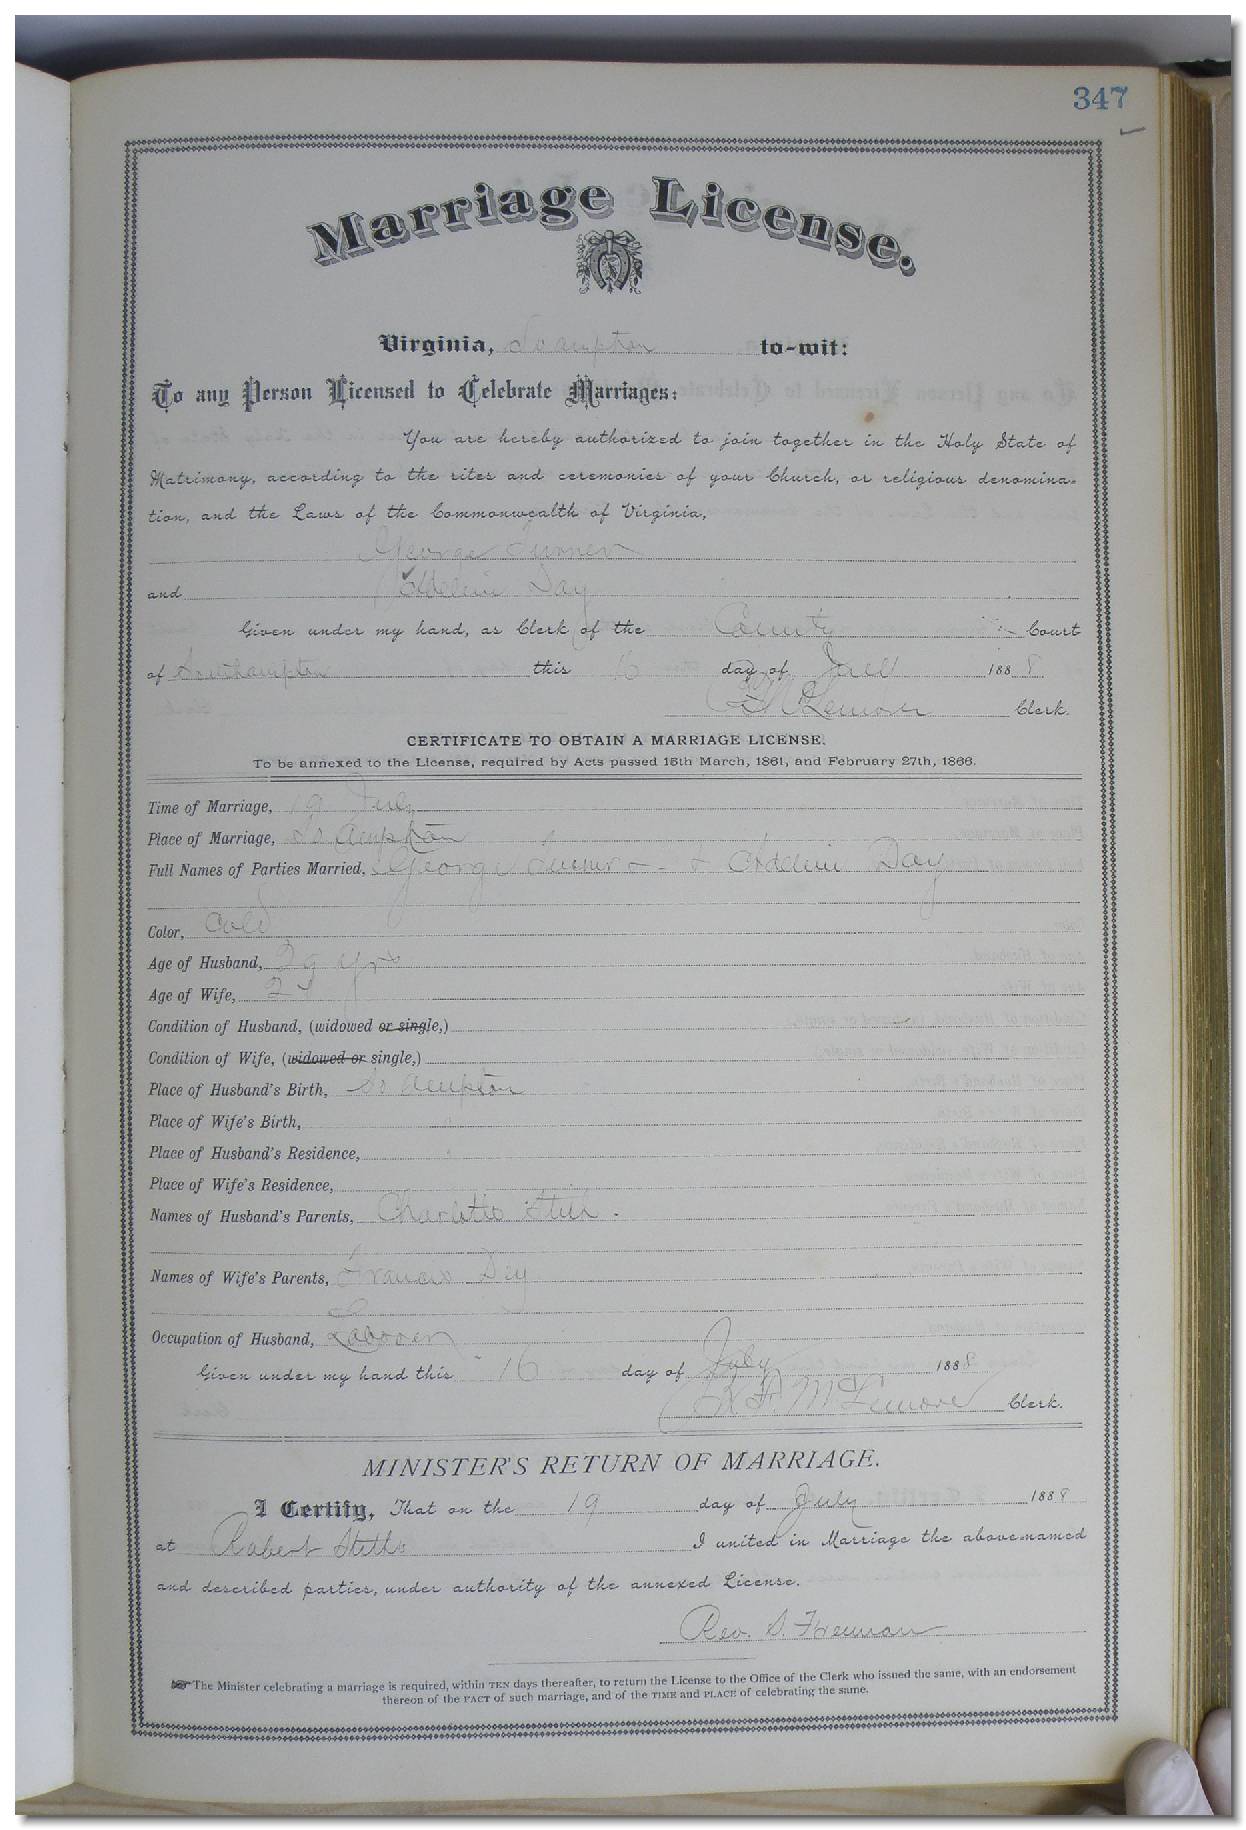 347
Marriage License.
Virginia, So ampton to-wit:
To any Person Licensed to Celebrate Marriages:
You are hereby authorized to join together in the Holy State of
Matrimony, according to the rites and ceremonies of your Church, or religious denomina-
tion, and the Laws of the Commonwealth of Virginia,
George Turner
and Addeline Day
Given under my hand, as Clerk of the County Court
of Southampton this 16 day of July 1888
McLemore Clerk.
CERTIFICATE TO OBTAIN A MARRIAGE LICENSE.
To be annexed to the License, required by Acts passed 15th March, 1861, and February 27th, 1866.
Time of Marriage, 19 July
Place of Marriage, So ampton
Full Names of Parties Married, George Turner & Addeline Day
Color, Cold
Age of Husband, 29 yrs
Age of Wife,
Condition of Husband, (widowed or single,)
Condition of Wife, (widowed or single,)
Place of Husband's Birth, So ampton
Place of Wife's Birth,
Place of Husband's Residence,
Place of Wife's Residence,
Names of Husband's Parents, Charlotte
Names of Wife's Parents, Francis Dey
Occupation of Husband, Laborer
Given under my hand this 16 day of July 1888
McLemore Clerk.
MINISTER'S RETURN OF MARRIAGE.
I Certify, That on the 19 day of July 1888
at Robert I united in Marriage the above-named
and described parties, under authority of the annexed License.
Rev. S. Freeman
The Minister celebrating a marriage is required, within TEN days thereafter, to return the License to the Office of the Clerk who issued the same, with an endorsement
thereon of the FACT of such marriage, and of the TIME and PLACE of celebrating the same.